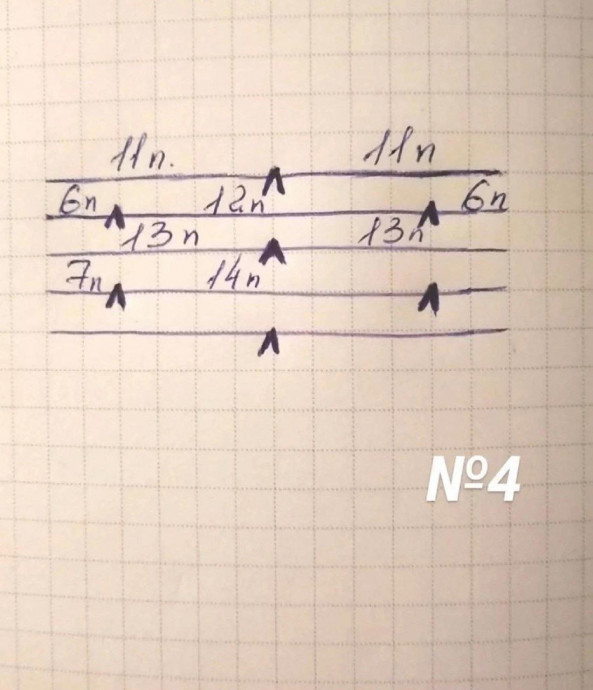 11п. 11п
6п 12п 6п
13п 13п
7п 14п
№4